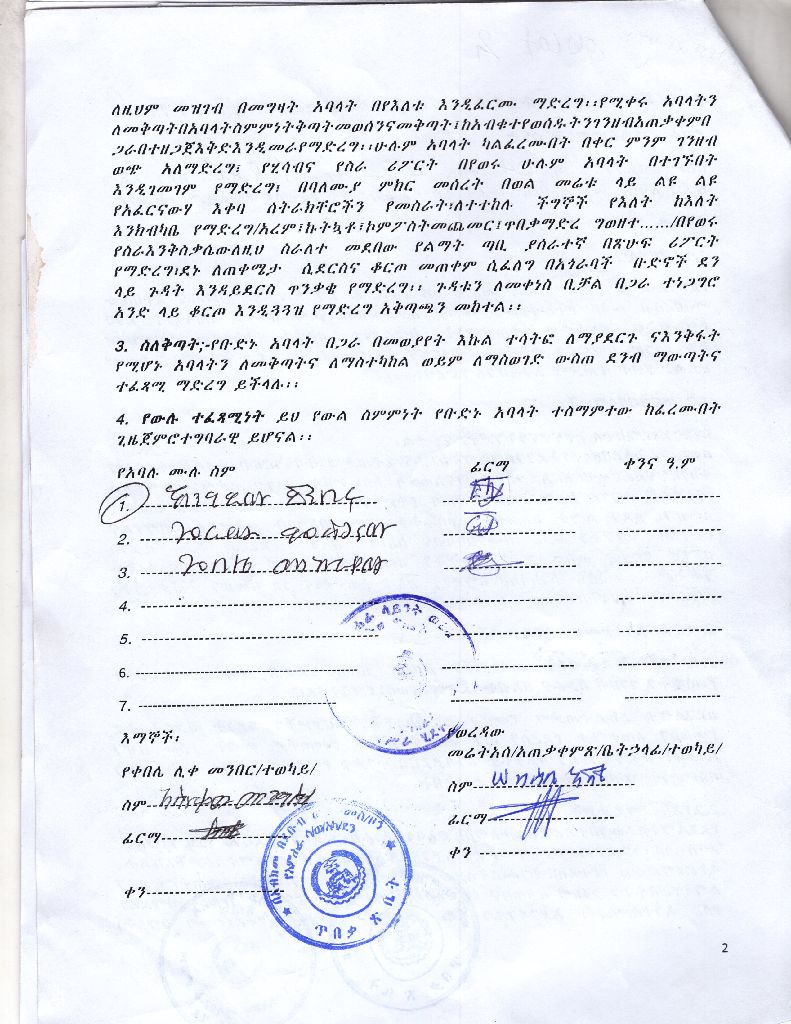 ለዚህም መዝገብ በመግዛት አባላት በየእለቱ እንዲፈርሙ ማድረግ፡፡የሚቀሩ አባላትን
ለመቅጣትበአባላትስምምነትቅጣትመወሰንናመቅጣት፤ከአብቁተየወሰዱትንገንዘብአጠቃቀምበ
ጋራበተዘጋጀእቅድእንዲመራየማድረግ፡፡ሁሉም አባላት ካልፈረሙበት በቀር ምንም ገንዘብ
ወጭ አለማድረግ፤ የሂሳብና የስራ ሪፖርት በየወሩ ሁሉም አባላት በተገኙበት
እንዲገመገም የማድረግ፤ በባለሙያ ምክር መሰረት በወል መሬቱ ላይ ልዩ ልዩ
የአፈርናውሃ እቀባ ስትራክቸሮችን የመስራት፤ለተተከሉ ችግኞች የእለት ከእለት
እንክብካቤ የማድረግ/አረም፣ኩትኳቶ፣ኮምፖስትመጨመር፤ጥበቃማድረ ግወዘተ……/በየወሩ
የስራእንቅስቃሴውለዚህ ስራለተ መደበው የልማት ጣቢ ያሰራተኛ በጽሁፍ ሪፖርት
የማድረግ፤ደኑ ለጠቀሜታ ሲደርስና ቆርጦ መጠቀም ሲፈለግ በአጎራባች ቡድኖች ደን
ላይ ጉዳት እንዳይደርስ ጥንቃቄ የማድረግ፡፡ ጉዳቱን ለመቀነስ ቢቻል በጋራ ተነጋግሮ
አንድ ላይ ቆርጦ እንዲጓጓዝ የማድረግ አቅጣጫን መከተል፡፡
3. ስለቅጣት;-የቡድኑ አባላት በጋራ በመወያየት እኩል ተሳትፎ ለማያደርጉ ናእንቅፋት
የሚሆኑ አባላትን ለመቅጣትና ለማስተካከል ወይም ለማስወገድ ውስጠ ደንብ ማውጣትና
ተፈጻሚ ማድረግ ይችላሉ፡፡
4. የውሉ ተፈጻሚነት ይህ የውል ስምምነት የቡድኑ አባላት ተስማምተው ከፈረሙበት
ጊዜጀምሮተግባራዊ ይሆናል፡፡
የአባሉ ሙሉ ስም ፊርማ ቀንና ዓ.ም
1.
2.
3
4.
5.
6.
7.
እማኞች፡
የወረዳው
መሬትአስ/አጠቃቀምጽ/ቤትኃላፊ/ተወካይ/
የቀበሌ ሊቀ መንበር/ተወካይ/
ስም
ስም
ፊርማ
ፊርማ
ቀን
ቀን
ጥበቃ
2